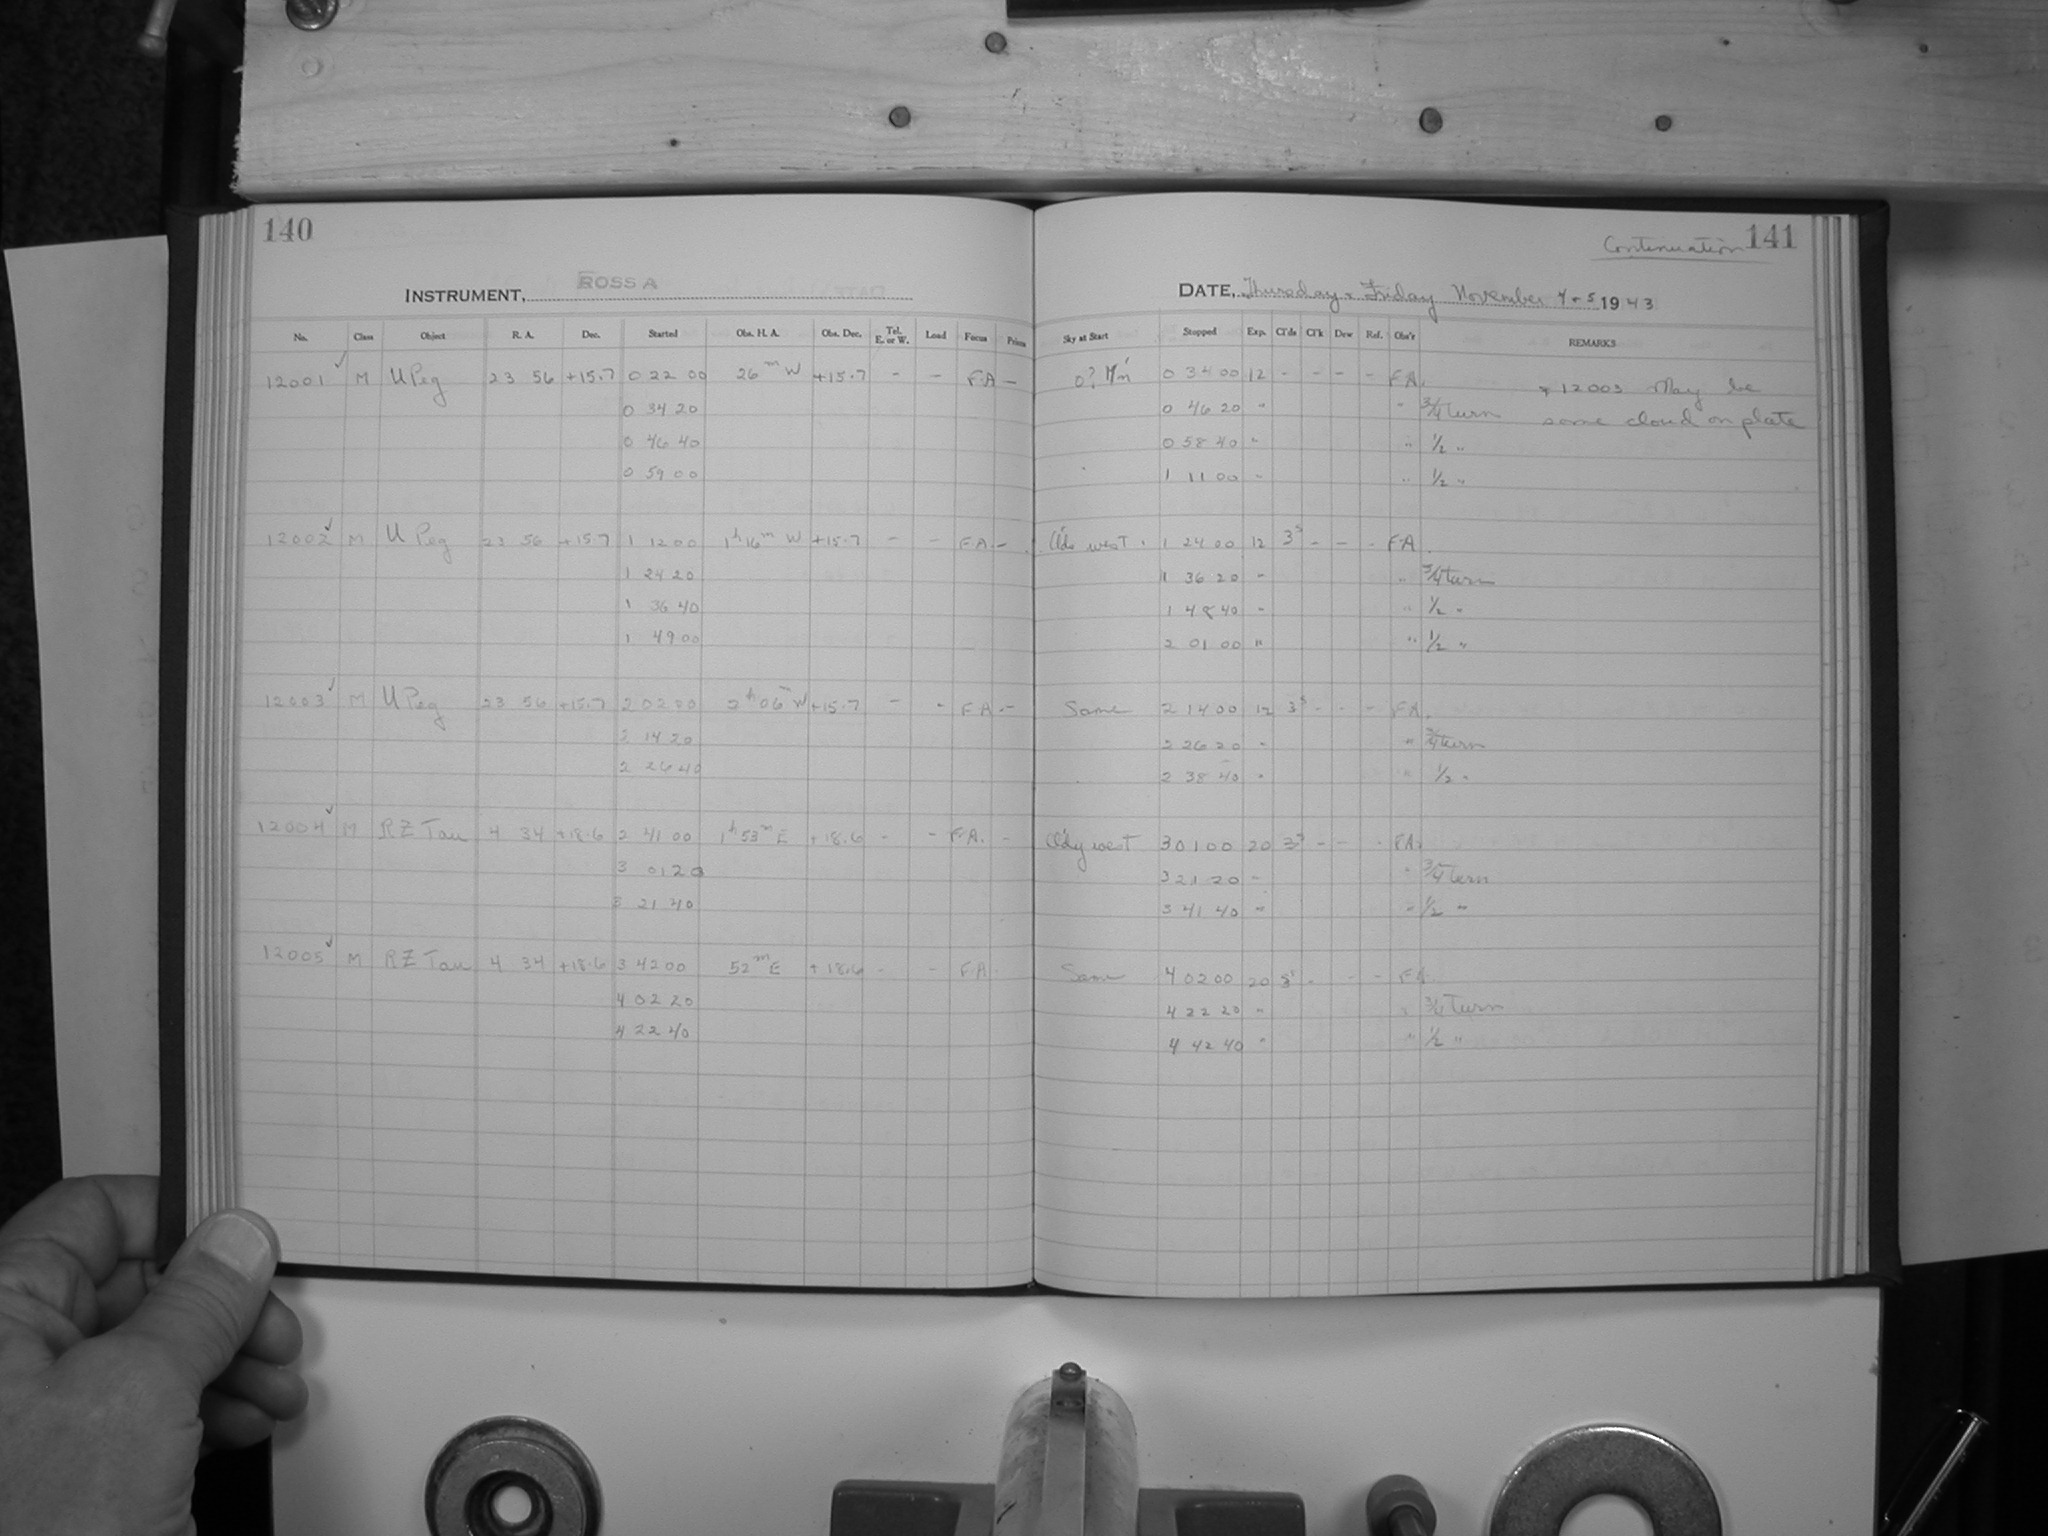 140
INSTRUMENT, ROSS A
No. Class Object R. A. Dec. Started Obs. H. A. Obs. Dec. Tel. E. or W. Load Focus Prism
12001 ✓ M U Peg 23 56 +15.7 0 22 00 26ᵐ W +15.7 - - F.A -
0 34 20
0 46 40
0 59 00
12002 ✓ M U Peg 23 56 +15.7 1 12 00 1ʰ 16ᵐ W +15.7 - - F.A. -
1 24 20
1 36 40
1 49 00
12003 ✓ M U Peg 23 56 +15.7 2 02 00 2ʰ 06ᵐ W +15.7 - - F.A. -
2 14 20
2 26 40
12004 ✓ M RZ Tau 4 34 +18.6 2 41 00 1ʰ 53ᵐ E +18.6 - - F.A. -
3 01 20
3 21 40
12005 ✓ M RZ Tau 4 34 +18.6 3 42 00 52ᵐ E +18.6 - - F.A.
4 02 20
4 22 40
Continuation 141
DATE, Thursday - Friday November 4-5 1943
Sky at Start Stopped Exp. Cl'ds Cl'k Dew Ref. Obs'r REMARKS
0 34 00 12 - - - - F.A. * 12003 May be
0 46 20 " " 3/4 turn some cloud on plate
0 58 40 " " 1/2 "
1 11 00 " " 1/2 "
Cl'ds west. 1 24 00 12 3ˢ - - - F.A.
1 36 20 " " 3/4 turn
1 48 40 " " 1/2 "
2 01 00 " " 1/2 "
Same 2 14 00 12 3ˢ - - - F.A.
2 26 20 " " 3/4 turn
2 38 40 " " 1/2 "
Cl'dy west 3 01 00 20 3ˢ - - - F.A.
3 21 20 " " 3/4 turn
3 41 40 " " 1/2 "
Same 4 02 00 20 3ˢ - - - F.A.
4 22 20 " " 3/4 turn
4 42 40 " " 1/2 "